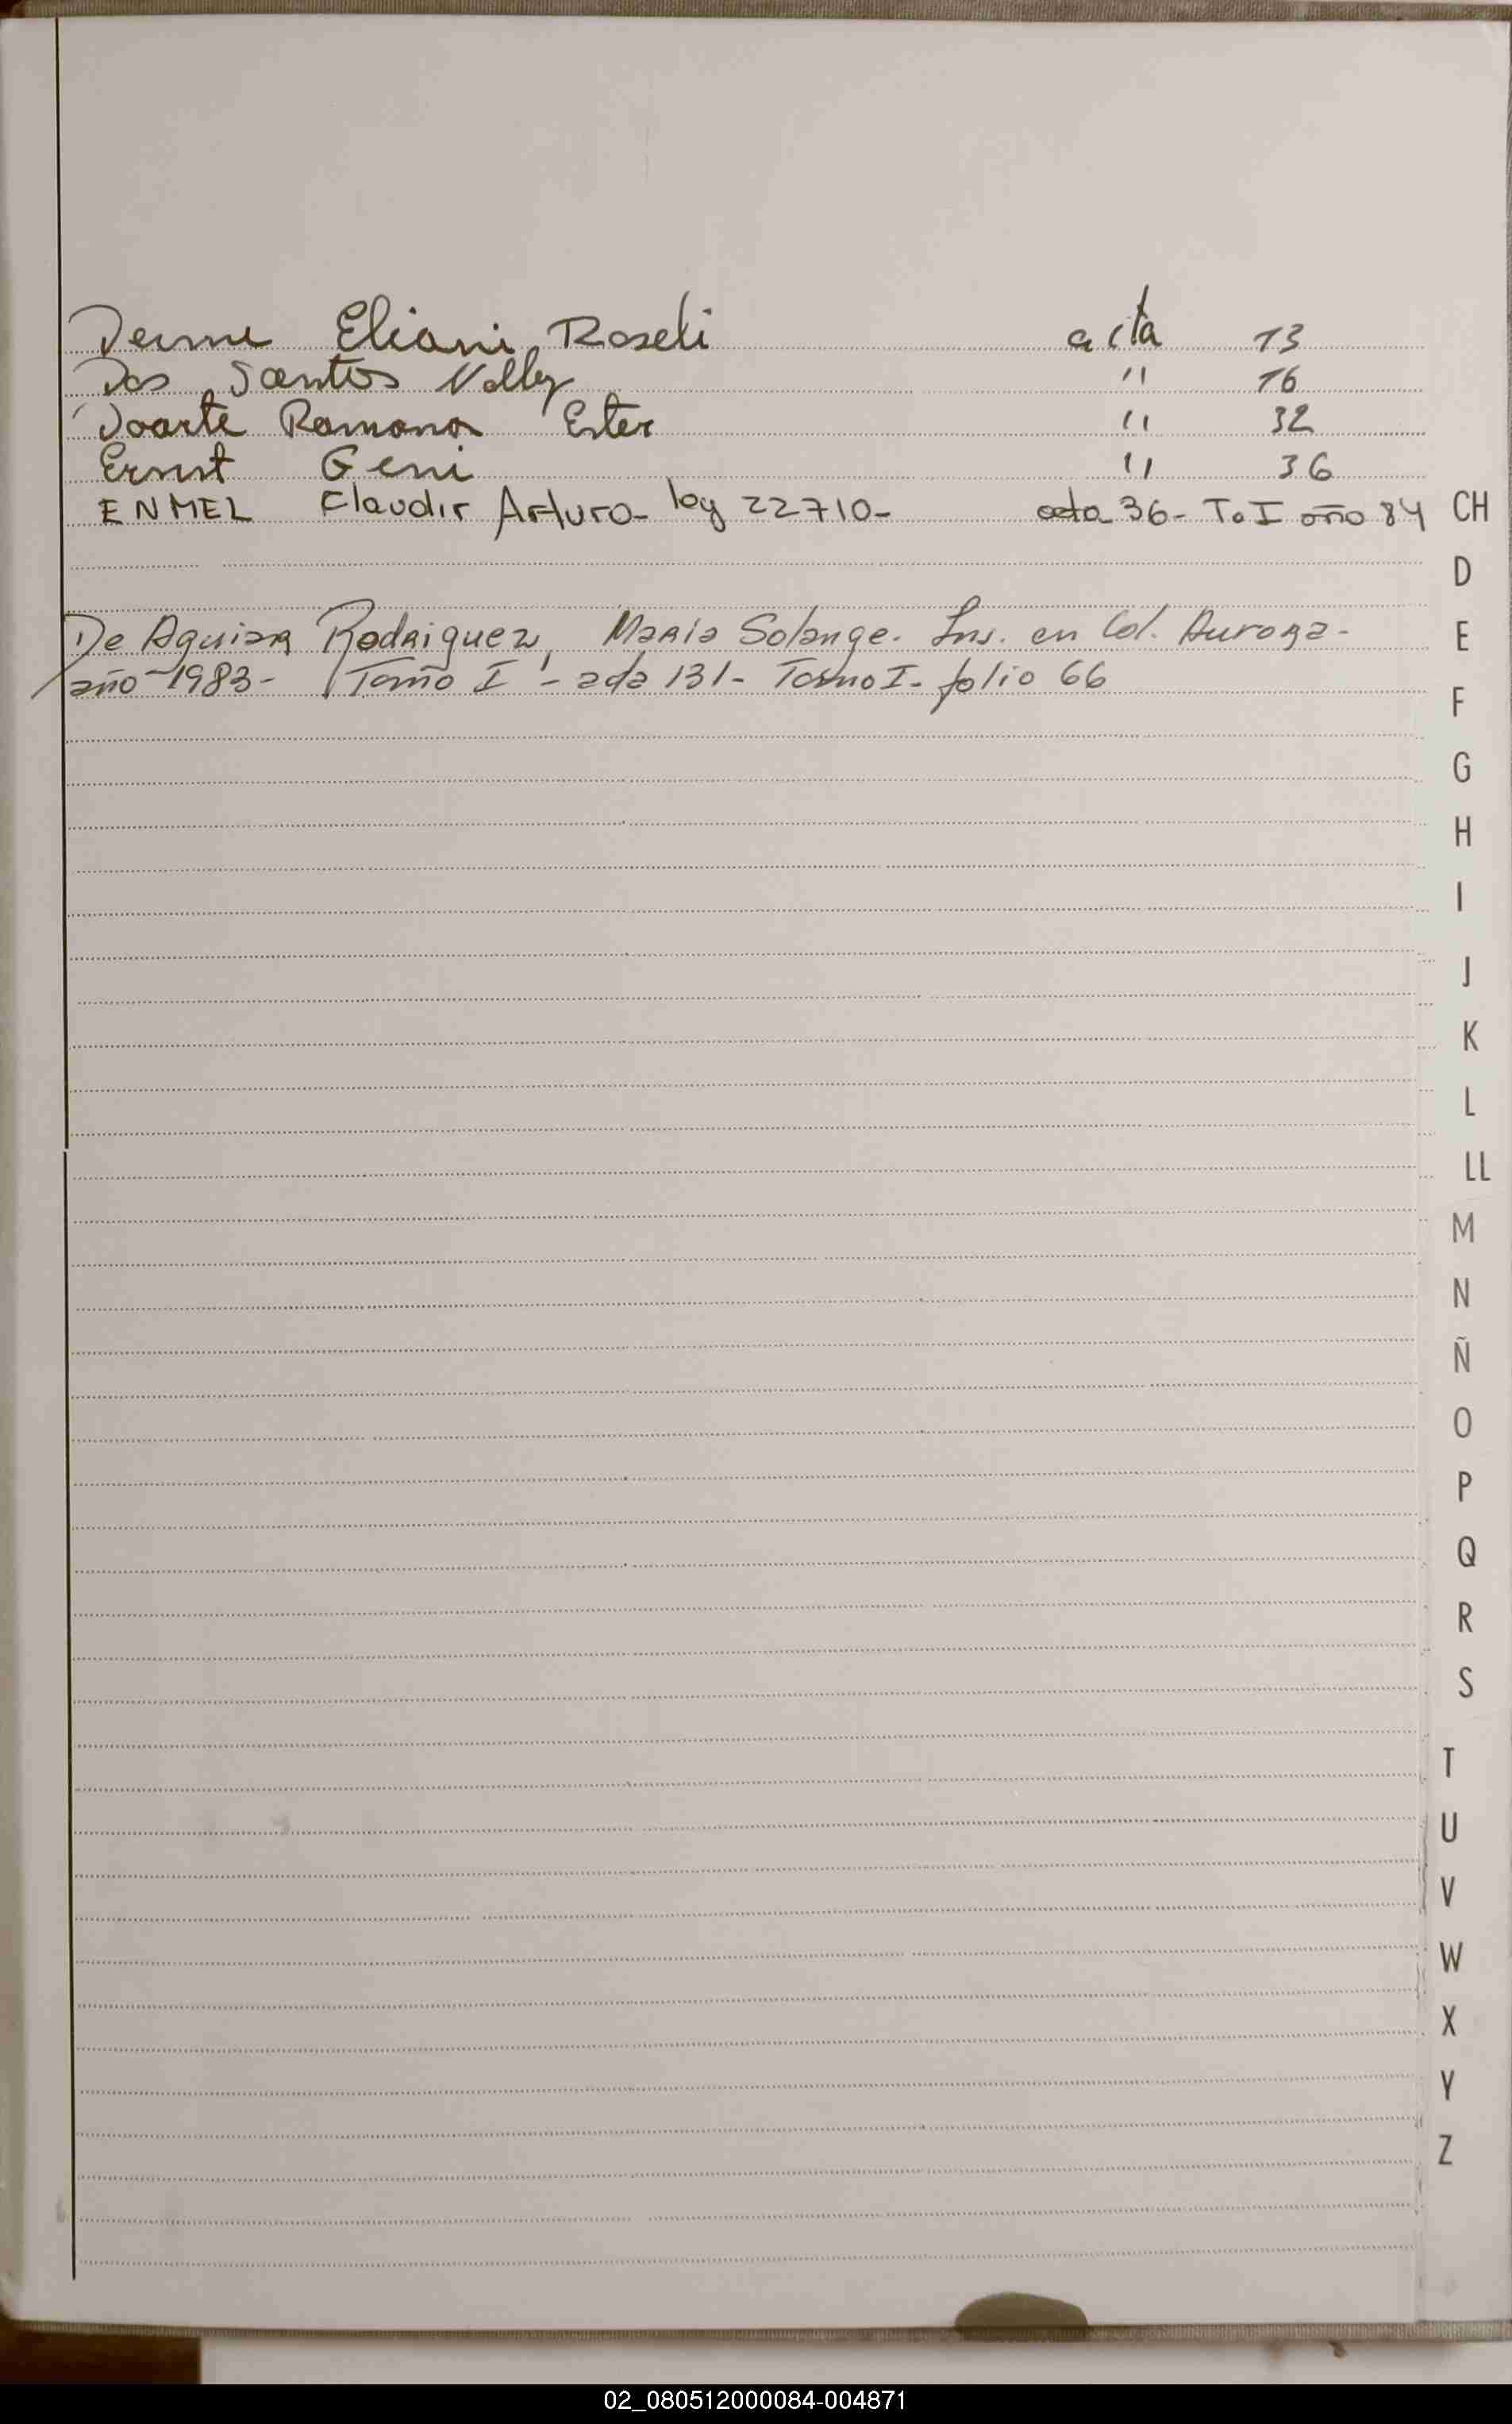 Eliani Roseli acta 13
Dos Santos Nelly " 16
Doarte Ramona Ester " 32
Ernst Geni " 36
ENMEL Claudir Arturo- ley 22710- acta 36- To I año 84
De Aguiar Rodriguez, Maria Solange. Ins. en Col. Aurora-
año 1983- Tomo I - acta 131- Tomo I- folio 66
CH
D
E
F
G
H
I
J
K
L
LL
M
N
Ñ
O
P
Q
R
S
T
U
V
W
X
Y
Z
02_080512000084-004871